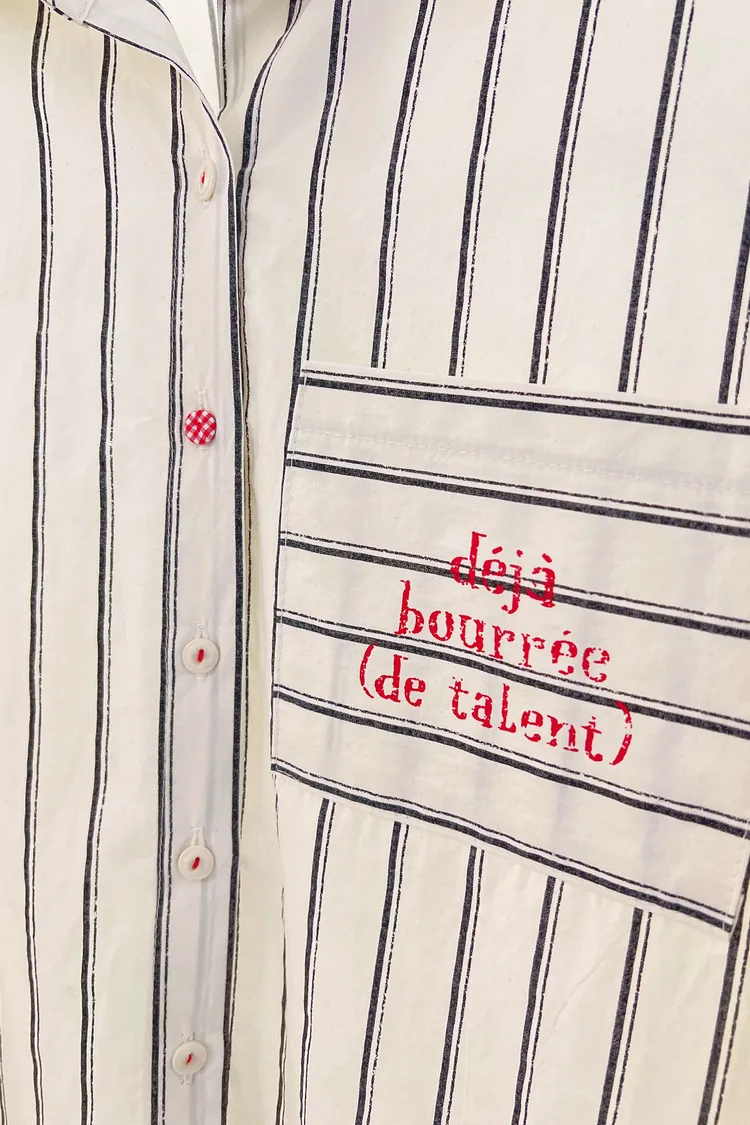 déjà
bourrée
(de talent)